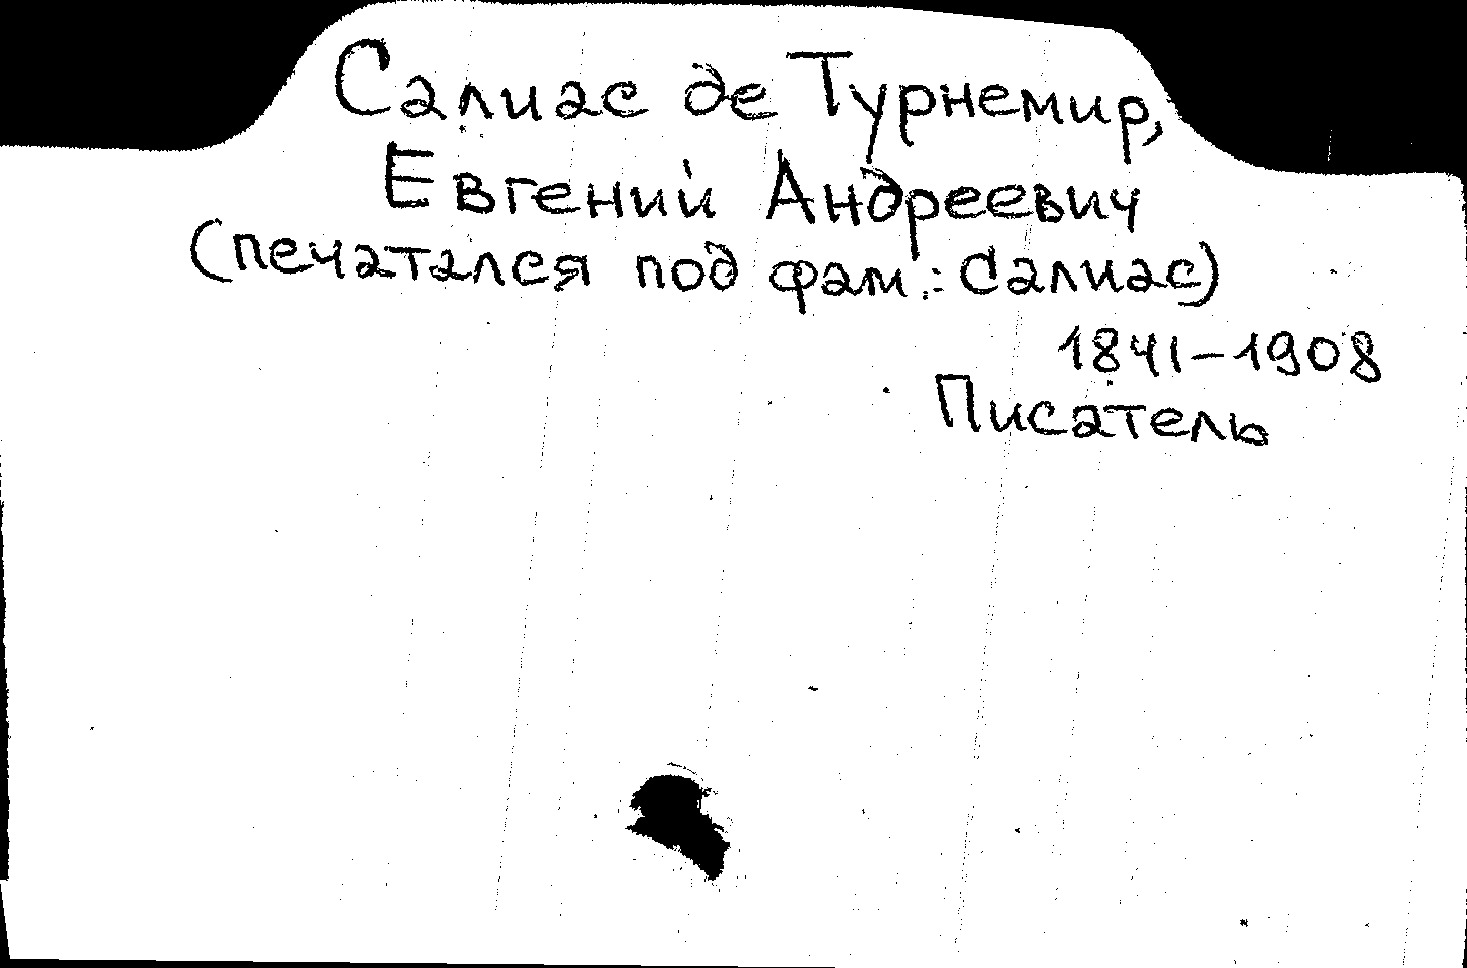 Салиас де Турнемир,
Евгений Андреевич
(печатался под фам.: Салиас)
1841-1908
Писатель